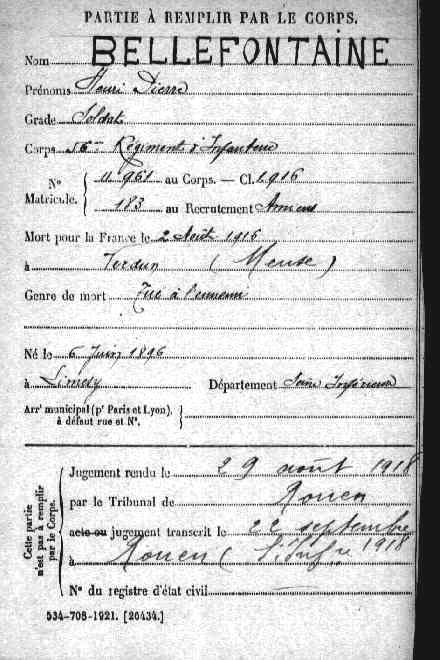 PARTIE À REMPLIR PAR LE CORPS.
Nom BELLEFONTAINE
Prénoms Henri Pierre
Grade Soldat
Corps 56me Régiment d'Infanterie
No Matricule. { 11961 au Corps. — Cl. 1916
183 au Recrutement Amiens
Mort pour la France le 2 Août 1916
à Verdun (Meuse)
Genre de mort Tué à l'ennemi
Né le 6 Juin 1896
à Limésy Département Seine Inférieure
Arrt municipal (pr Paris et Lyon), à défaut rue et No. }
Cette partie n'est pas à remplir par le Corps.
Jugement rendu le 29 août 1918
par le Tribunal de Rouen
acte ou jugement transcrit le 22 septembre 1918
à Rouen (S. Infre
No du registre d'état civil
534-708-1921. [26434.]